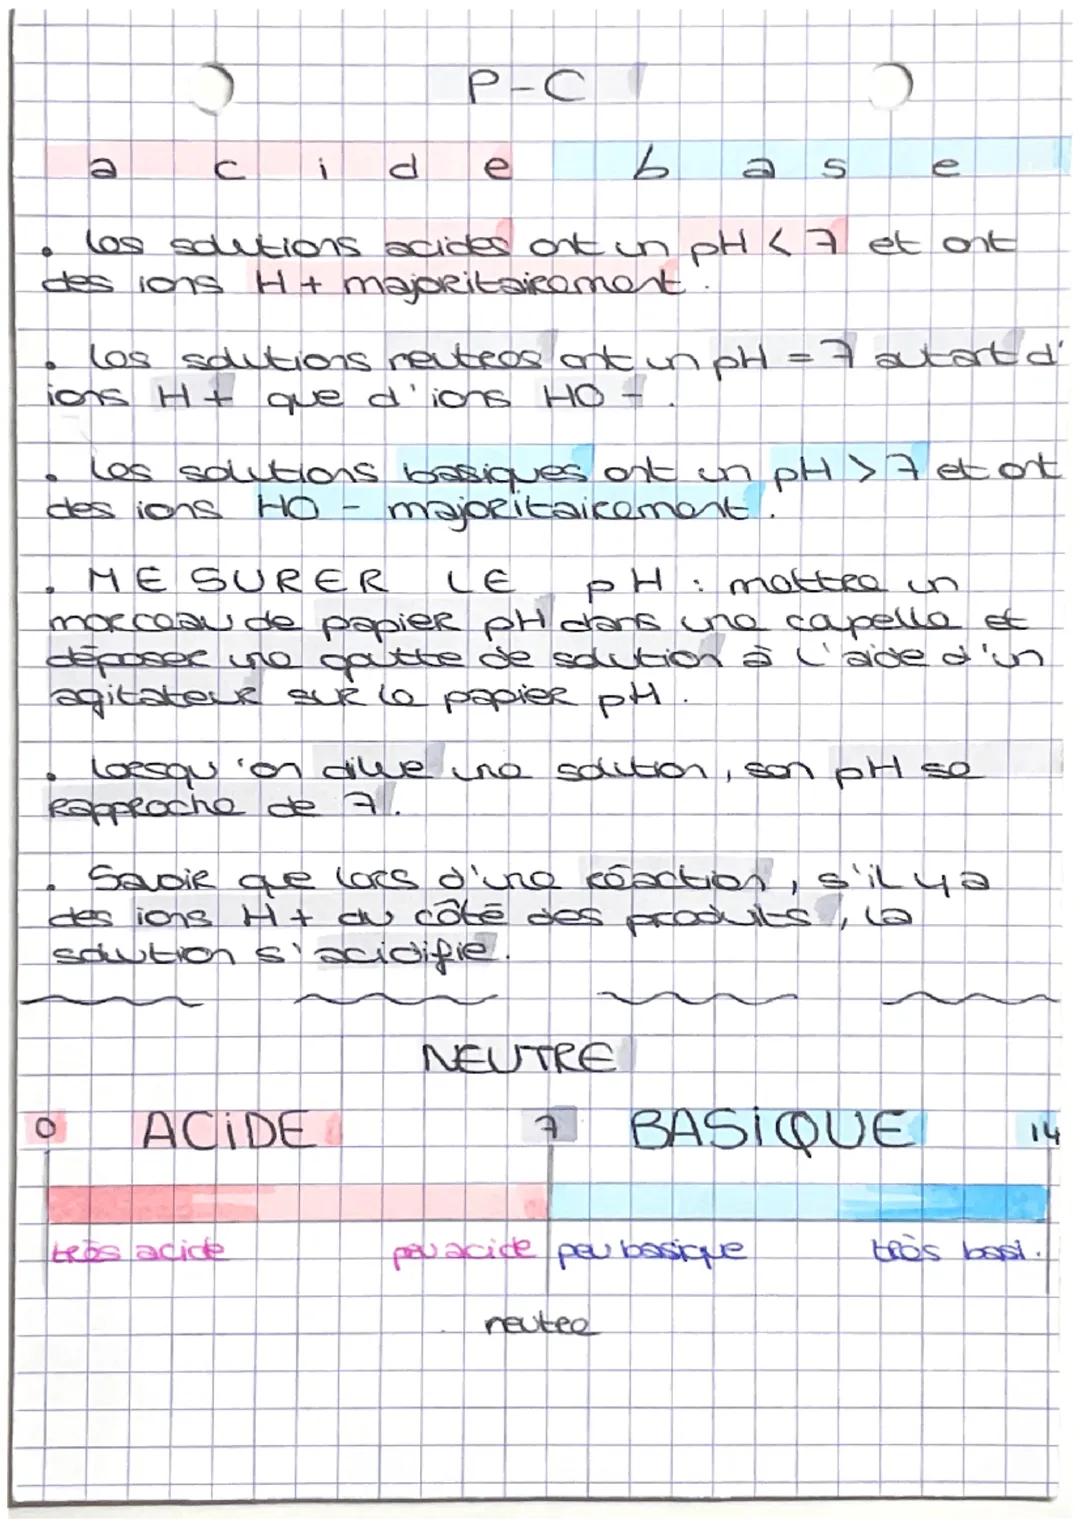 P-C
acide base
• Les solutions acides ont un pH < 7 et ont
des ions H+ majoritairement.
• Les solutions neutres ont un pH = 7 autant d'
ions H+ que d'ions HO -.
• Les solutions basiques ont un pH > 7 et ont
des ions HO - majoritairement.
• MESURER LE pH : mettre un
morceau de papier pH dans une capelle et
déposer une goutte de solution à l'aide d'un
agitateur sur le papier pH.
• Lorsqu'on dilue une solution, son pH se
rapproche de 7.
• Savoir que lors d'une réaction, s'il y a
des ions H+ du côté des produits, la
solution s'acidifie.
NEUTRE
0 ACIDE 7 BASIQUE 14
très acide peu acide peu basique très basi.
neutre